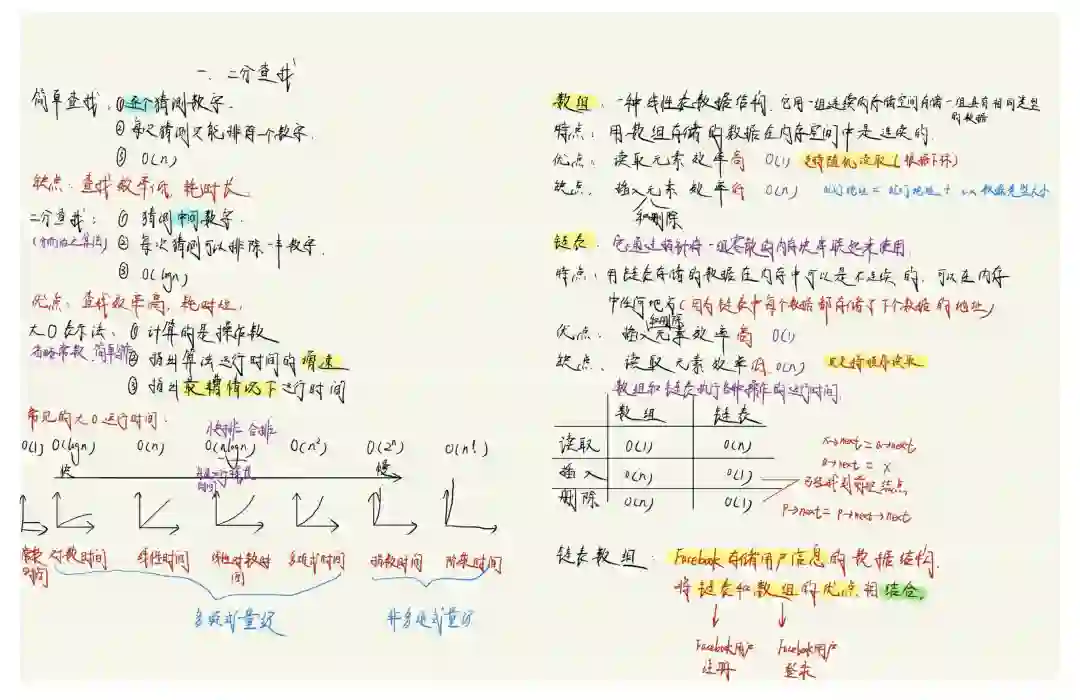 一. 二分查找
简单查找: ① 逐个猜测数字.
② 每次猜测只能排除一个数字.
③ O(n)
缺点: 查找效率低, 耗时长
二分查找: ① 猜测中间数字.
(分而治之算法) ② 每次猜测可以排除一半数字.
③ O(logn)
优点: 查找效率高, 耗时短.
大O表示法: ① 计算的是操作数
省略常数 简单 ② 指出算法运行时间的增速
③ 指出最糟情况下运行时间
常见的大O运行时间:
快排 合排
O(1) O(logn) O(n) O(nlogn) O(n²) O(2ⁿ) O(n!)
快 慢
运行 时间
常数时间 对数时间 线性时间 线性对数时间 多项式时间 指数时间 阶乘时间
多项式量级 非多项式量级
数组: 一种线性表数据结构. 它用一组连续的存储空间存储一组具有相同类型的数据
特点: 用数组存储的数据在内存空间中是连续的.
优点: 读取元素效率高 O(1) 支持随机读取(根据下标)
缺点: 插入元素效率低 O(n) a[i]地址 = a[0]地址 + i x 数据类型大小
和删除
链表: 它通过指针将一组零散的内存块串联起来使用.
特点: 用链表存储的数据在内存中可以是不连续的, 可以在内存
中任何地方(因为链表中每个数据都存储了下个数据的地址)
和删除
优点: 插入元素效率高 O(1)
缺点: 读取元素效率低 O(n) 只支持顺序读取
数组和链表执行各种操作的运行时间
数组 链表
读取 O(1) O(n)
插入 O(n) O(1)
删除 O(n) O(1)
x->next = a->next
a->next = x
已经找到前驱结点
p->next = p->next->next
链表数组: Facebook存储用户信息的数据结构.
将链表和数组的优点相结合.
Facebook用户 Facebook用户
注册 登录